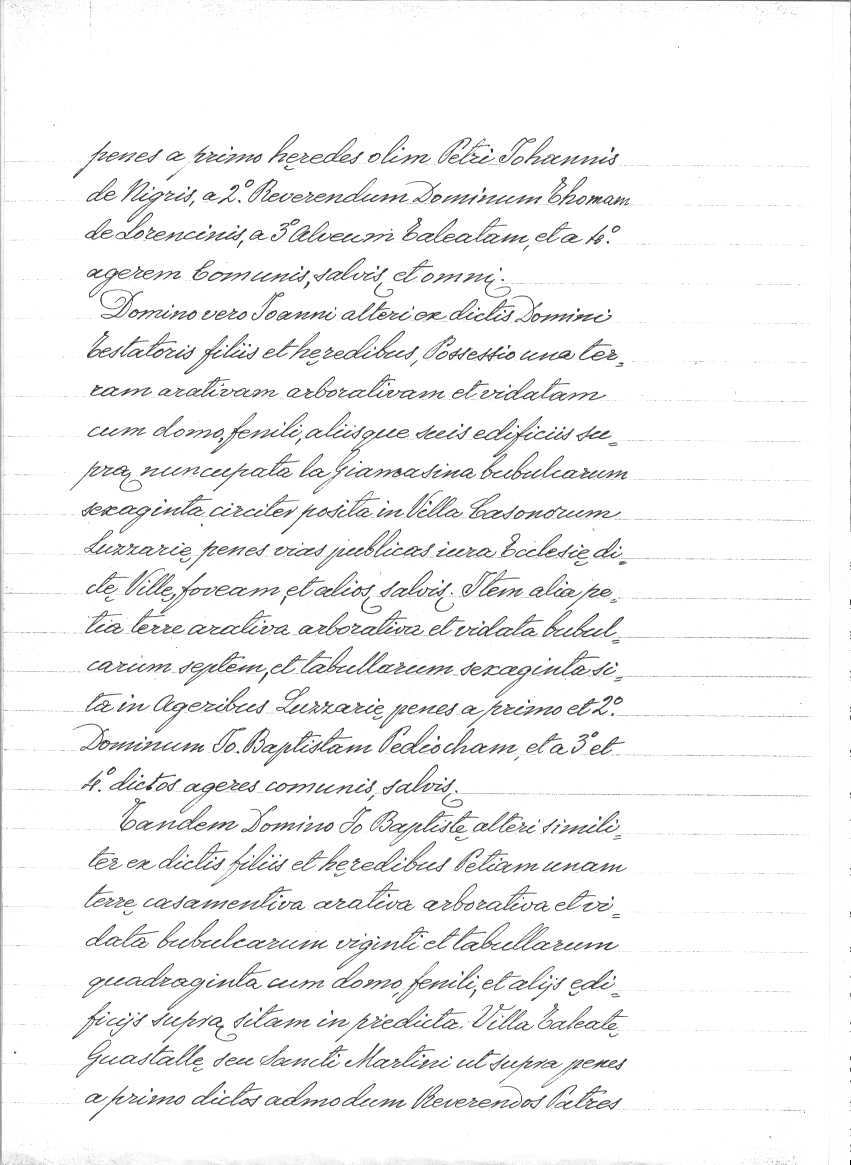 penes a primo hęredes olim Petri Iohannis
de Nigris, a 2º. Reverendum Dominum Thomam
de Lorencinis, a 3º Alveum Taleatam, et a 4º.
agerem Comunis, salvis, et omni.
Domino vero Ioanni alteri ex dictis Domini
Testatoris filiis et hęredibus, Possessio una ter=
ram arativam arborativam et vidatam
cum domo, fenili, aliisque suis edificiis su=
pra, nuncupata la Giamasina bubulcarum
sexaginta circiter posita in Villa Casonorum
Luzzarię, penes vias publicas iura Ecclesię di=
ctę Villę, foveam, et alios, salvis. Item alia pe=
tia terre arativa arborativa et vidata bubul=
carum septem, et tabullarum sexaginta si=
ta in Ageribus Luzzarię penes a primo et 2º.
Dominum Io. Baptistam Pediocham, et a 3º et
4º. dictos ageres comunis, salvis.
Tandem Domino Io Baptistę alteri simili=
ter ex dictis filiis et hęredibus Petiam unam
terrę casamentiva arativa arborativa et vi=
data bubulcarum viginti et tabullarum
quadraginta cum domo, fenili, et alijs ędi=
ficijs supra, sitam in prędicta Villa Taleatę
Guastallę seu Sancti Martini ut supra penes
a primo dictos admodum Reverendos Patres